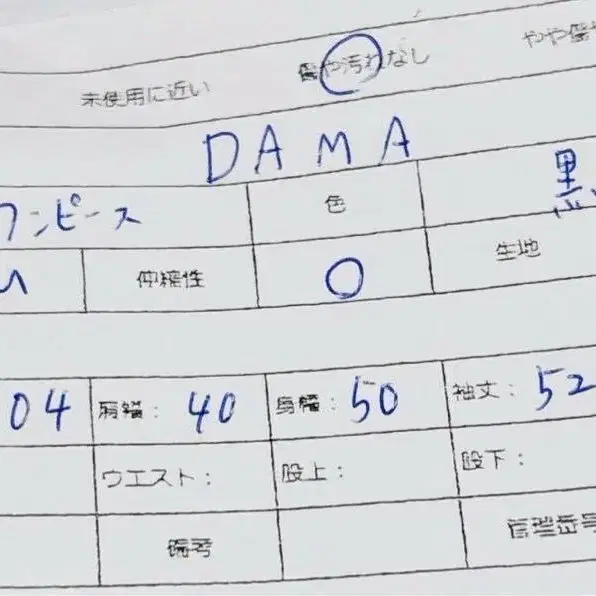 未使用に近い 傷や汚れなし やや傷や
DAMA
ワンピース 色 黒
伸縮性 O 生地
04 肩幅: 40 身幅: 50 袖丈: 52
ウエスト: 股上: 股下:
備考 管理番号